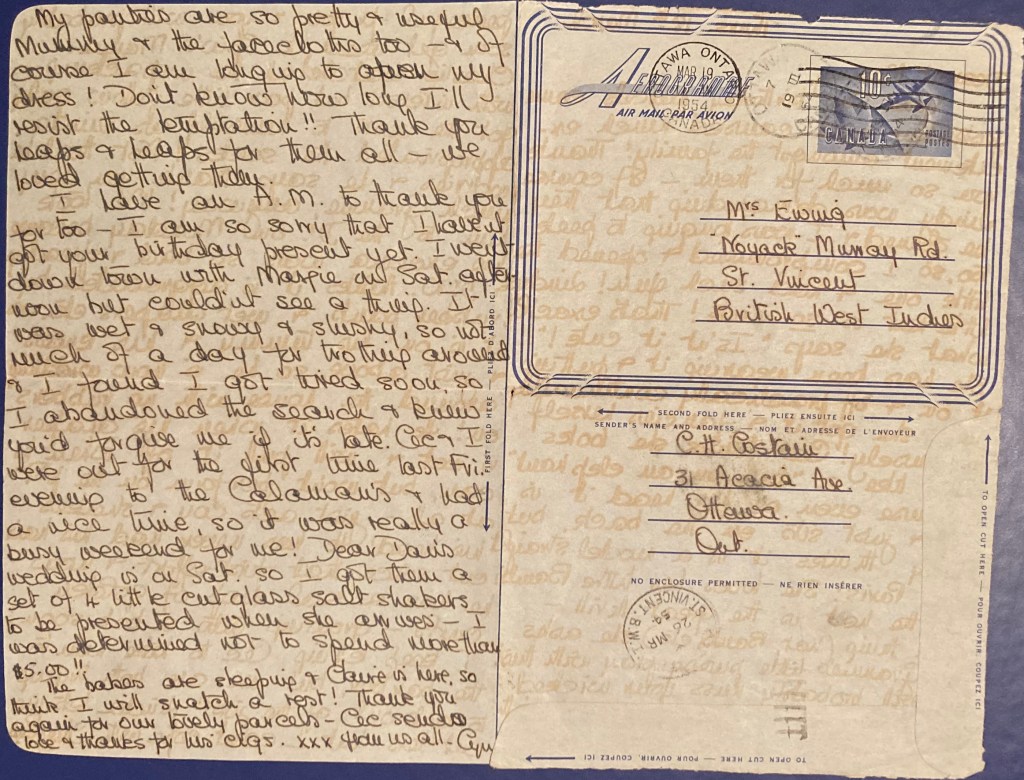 My panties are so pretty & useful
Mummy & the facecloths too - & of
course I am longing to open my
dress! Don't know how long I'll
resist the temptation!! Thank you
heaps & heaps for them all - we
loved getting them.
I have an A.M. to thank you
for too - I am so sorry that I haven't
got your birthday present yet. I went
down town with Margie on Sat. after
noon but couldn't see a thing. It
was wet & snowy & slushy, so not
much of a day for trotting around
& I found I got tired soon, so
I abandoned the search & knew
you'd forgive me if it's late. Cec & I
were out for the first time last Fri.
evening to the Calaman's & had
a nice time, so it was really a
busy weekend for me! Dear Davis
wedding is on Sat. so I got them a
set of 4 little cut glass salt shakers
to be presented when she arrives - I
was determined not to spend more than
$5.00!!
The babes are sleeping & Claire is here, so
think I will snatch a rest! Thank you
again for our lovely parcels - Cec sends
love & thanks for his cigs. xxx from us all - Cyn
FIRST FOLD HERE — PLIEZ D'ABORD ICI
AEROGRAMME
AIR MAIL·PAR AVION
OTTAWA ONTARIO
MAR 19
1954
CANADA
10¢
CANADA
POSTAGE
POSTES
Mrs Ewing
"Noyack" Murray Rd.
St. Vincent
British West Indies
SECOND FOLD HERE — PLIEZ ENSUITE ICI
SENDER'S NAME AND ADDRESS — NOM ET ADRESSE DE L'ENVOYEUR
C.H. Costain
31 Acacia Ave.
Ottawa.
Ont.
NO ENCLOSURE PERMITTED — NE RIEN INSÉRER
ST. VINCENT. B.W.I.
26 MR
54
TO OPEN CUT HERE — POUR OUVRIR, COUPEZ ICI
TO OPEN CUT HERE — POUR OUVRIR, COUPEZ ICI